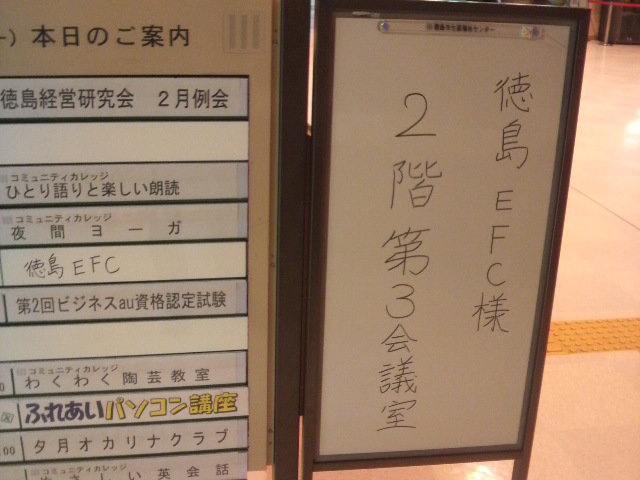 本日のご案内
徳島経営研究会 2月例会
コミュニティカレッジ
ひとり語りと楽しい朗読
コミュニティカレッジ
夜間ヨーガ
徳島EFC
第2回ビジネスau資格認定試験
コミュニティカレッジ
わくわく陶芸教室
ふれあいパソコン講座
夕月オカリナクラブ
コミュニティカレッジ
やさしい英会話
徳島EFC様
2階第3会議室